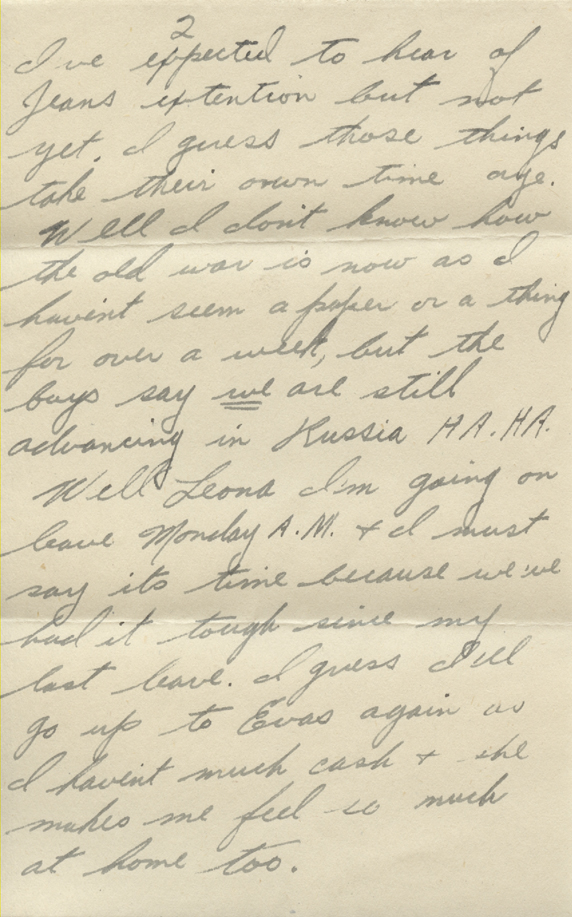 2
I've expected to hear of
Jeans extention but not
yet. I guess those things
take their own time aye.
Well I don't know how
the old war is now as I
havin't seem a paper or a thing
for over a week, but the
boys say we are still
advancing in Russia HA. HA.
Well Leona I'm going on
leave Monday A.M. + I must
say its time because we've
had it tough since my
last leave. I guess I'll
go up to Evas again as
I havin't much cash + she
makes me feel so much
at home too.